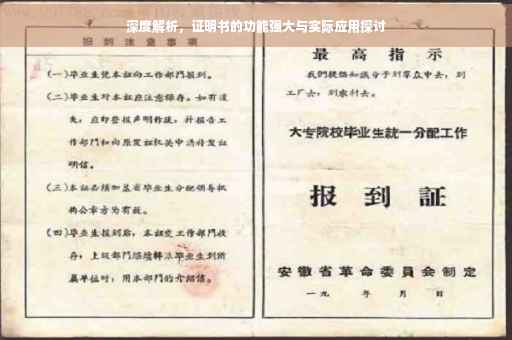 深度解析，证明书的功能强大与实际应用探讨
报到注意事项
(一)毕业生凭本证向工作部门报到。
(二)毕业生对本证应注意保存。如有遗
失，应即登报声明作废，并报告工
作部门和向原发证机关申请补发证
明信。
(三)本证必须加盖省毕业生分配领导机
构公章方为有效。
(四)毕业生报到后，本证交工作部门收
存；上级部门继续转派毕业生到所
属单位时，用本部门的介绍信。
最高指示
我们提倡知识分子到群众中去，到
工厂去，到农村去。
大专院校毕业生统一分配工作
报到証
安徽省革命委员会制定
一九 年 月 日